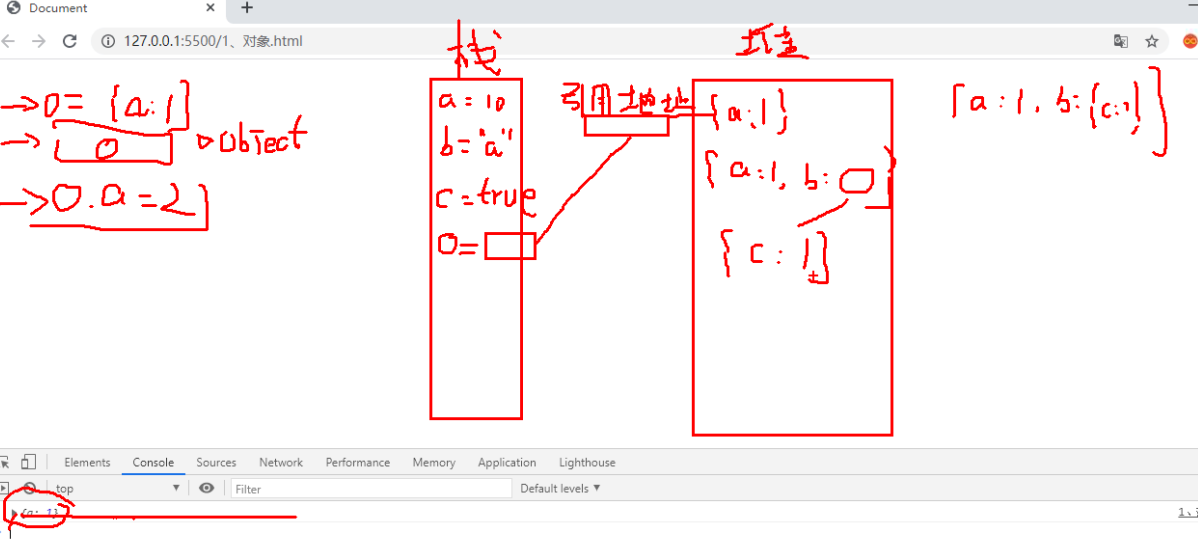 Document
127.0.0.1:5500/1、对象.html
栈
堆
o={a:1}
o Object
o.a=2
a=10
b="a"
c=true
o=
引用地址
{a:1}
{a:1, b: }
{c:1}
{a:1, b:{c:1}}
Elements Console Sources Network Performance Memory Application Lighthouse
top Filter Default levels
{a: 1}